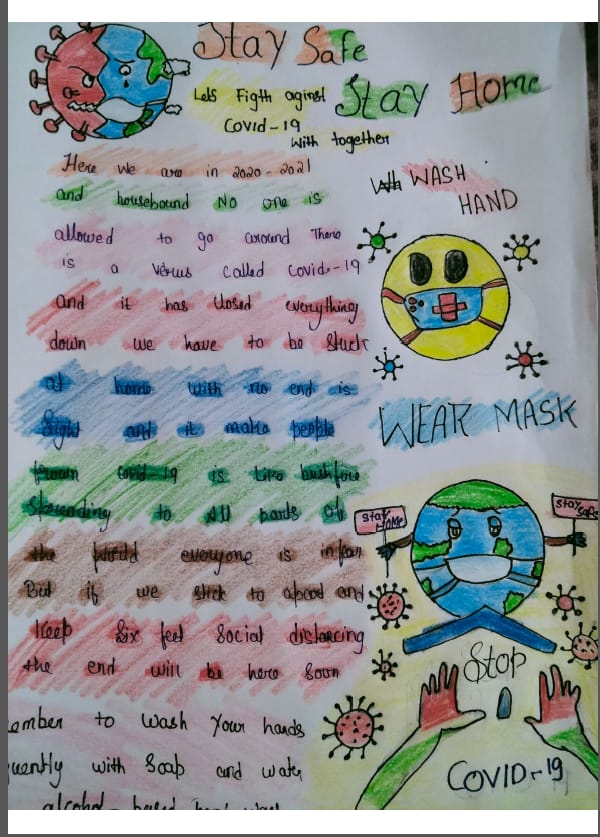 Stay Safe
Lets Figth aginst
Covid-19
With together
Stay Home
Here we are in 2020-2021
and housebound No one is
allowed to go around There
is a verus called Covid-19
and it has closed everything
down we have to be stuck
at home with no end is
Sight and it make people
frown Covid-19 is like bushfire
Spreading to All parts of
the World everyone is in fear
But if we stick to and
Keep Six feet Social distancing
the end will be here Soon
ember to Wash Your hands
uently with Soap and Wate
alcohol-based hand
WASH
HAND
WEAR MASK
Stay
Home
Stay
Safe
Stop
COVID-19